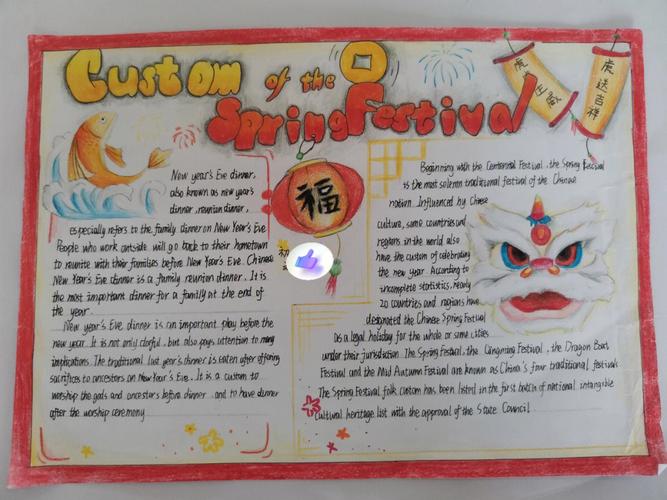 Custom of the
Spring Festival
虎虎生威
虎送吉祥
福
New year's Eve dinner,
also known as new year's
dinner, reunion dinner,
especially refers to the family dinner on New Year's Eve
People who work outside will go back to their hometown
to reunite with their families before New Year's Eve. Chinese
New Year's Eve dinner is a family reunion dinner. It is
the most important dinner for a family at the end of
the year.
New year's Eve dinner is an important play before the
new year. It is not only colorful, but also pays attention to many
implications. The traditional last year's dinner is eaten after offering
sacrifices to ancestors on New Year's Eve. It is a custom to
worship the gods and ancestors before dinner and to have dinner
after the worship ceremony
初
Beginning with the Centennial Festival, the Spring Festival
is the most solemn traditional festival of the Chinese
nation. Influenced by Chinese
culture, some countries and
regions in the world also
have the custom of celebrating
the new year. According to
incomplete statistics, nearly
20 countries and regions have
designated the Chinese Spring Festival
as a legal holiday for the whole or some cities
under their jurisdiction. The Spring Festival, the Qingming Festival, the Dragon Boat
Festival and the Mid Autumn Festival are known as China's four traditional festivals
The Spring Festival folk custom has been listed in the first batch of national intangible
cultural heritage list with the approval of the State Council